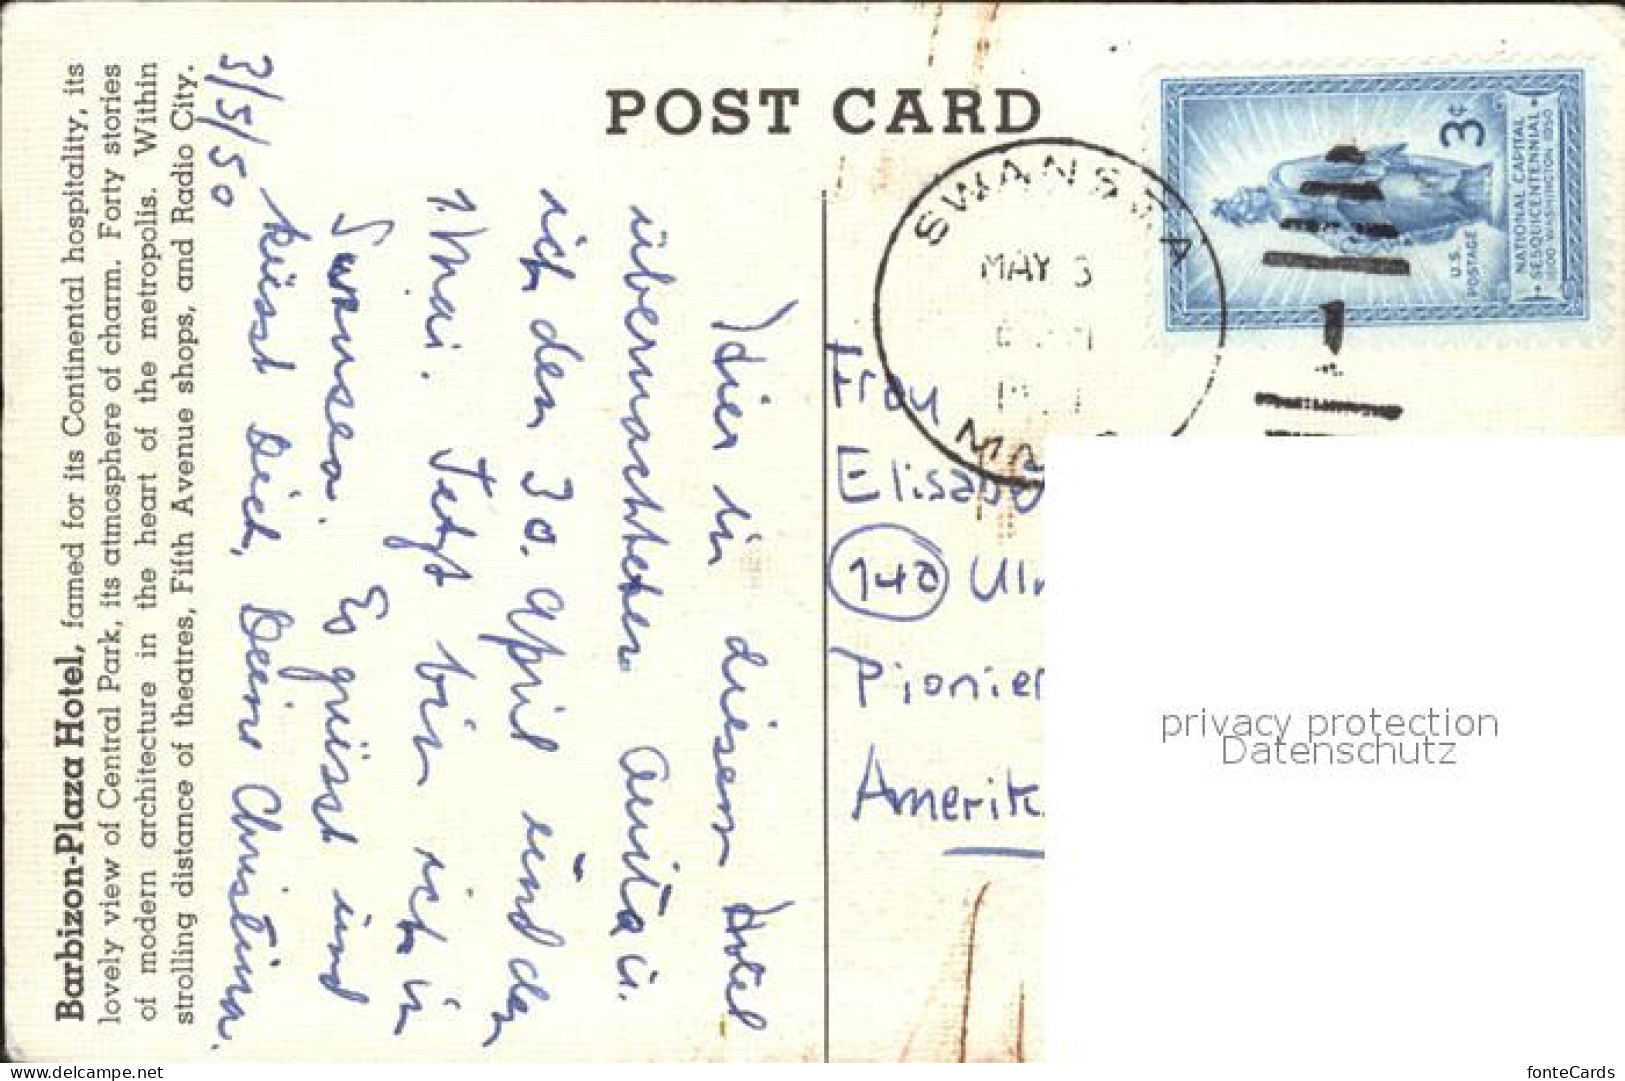 POST CARD
Barbizon-Plaza Hotel, famed for its Continental hospitality, its
lovely view of Central Park, its atmosphere of charm. Forty stories
of modern architecture in the heart of the metropolis. Within
strolling distance of theatres, Fifth Avenue shops, and Radio City.
3/5/50
Hier in diesem Hotel
übernachteten Anita u.
ich den 30. April und den
1. Mai. Jetzt bin ich in
Swansea. Es grüsst und
küsst Dich, Deine Christina.
SWANSEA
MAY 3
3¢
U.S. POSTAGE
NATIONAL CAPITAL
SESQUICENTENNIAL
1800 WASHINGTON 1950
140
Pionier
Amerik
privacy protection
Datenschutz
www.delcampe.net
fonteCards